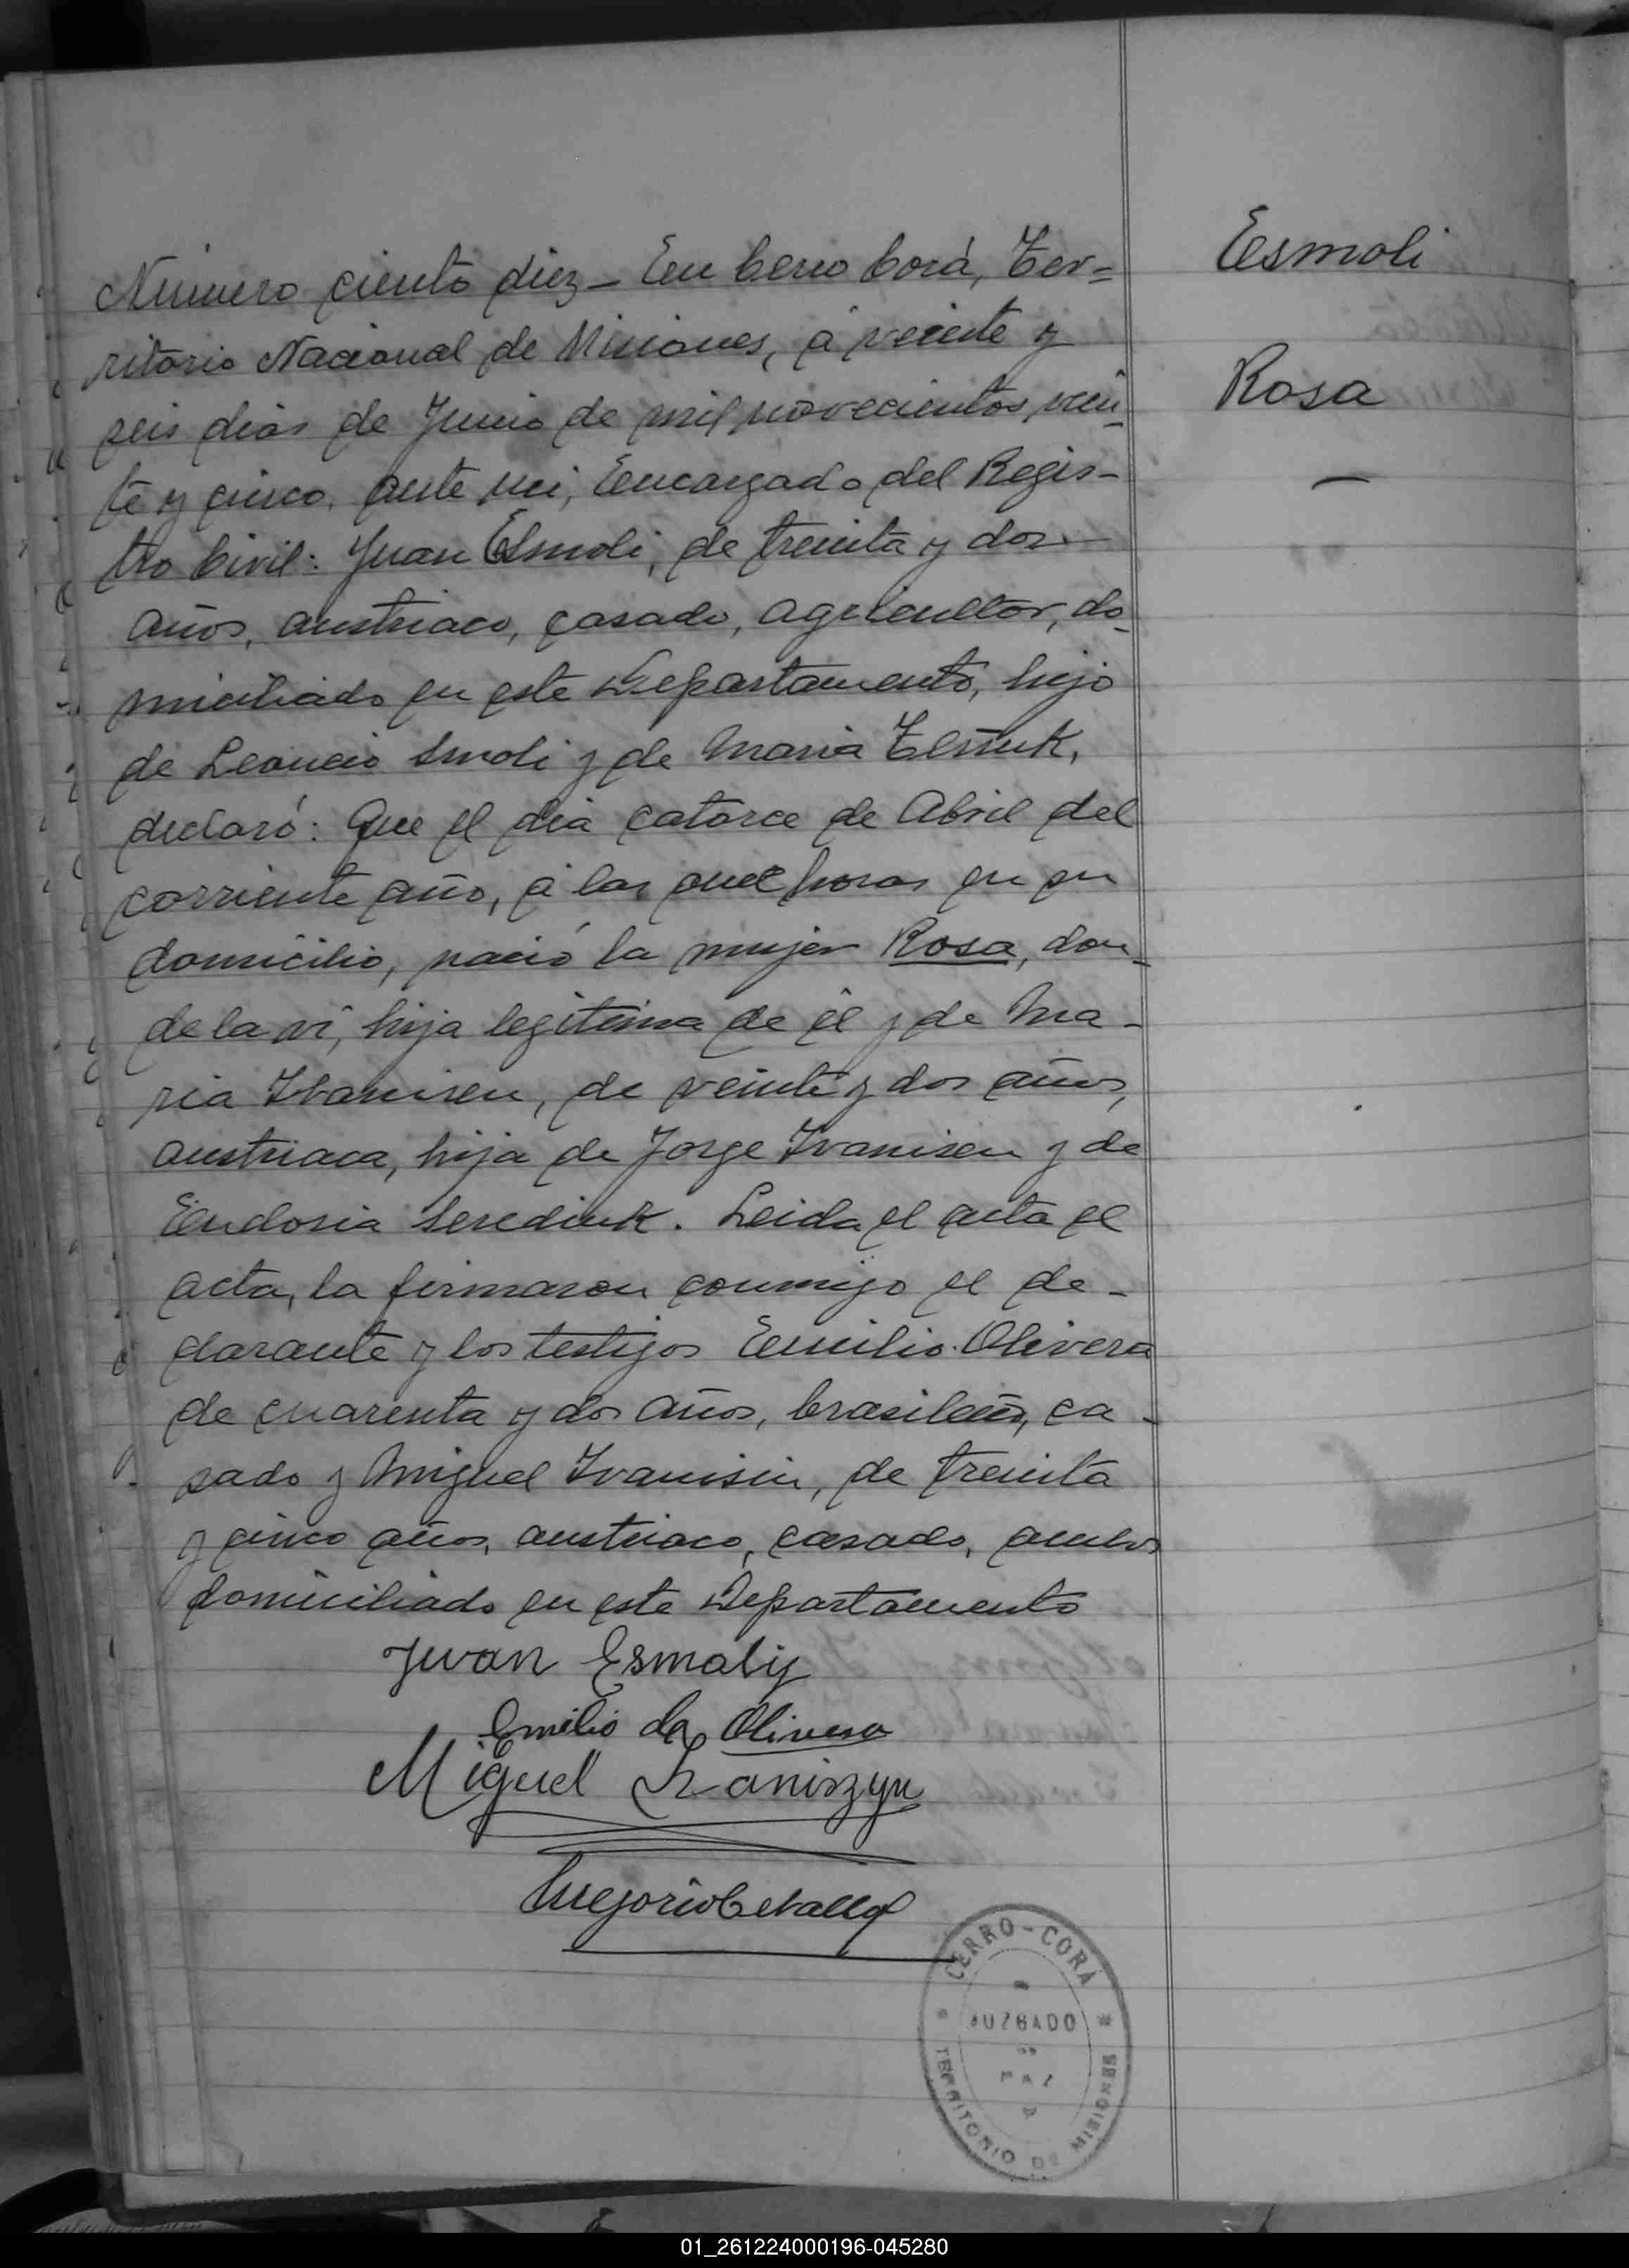 Esmoli
Rosa
Número ciento diez - En Cerro Corá, Ter=
ritorio Nacional de Misiones, á veinte y
seis dias de Junio de mil novecientos vein
te y cinco, ante mi, Encargado del Regis-
tro Civil: Juan Esmoli, de treinta y dos
años, austriaco, casado, agricultor, do-
miciliado en este Departamento, hijo
de Leoncio Smoli y de Maria
declaró: Que el dia catorce de Abril del
corriente año, á las horas en su
domicilio, nació la mujer Rosa, don-
de la ví, hija legitima de él y de Ma-
ria Ivanisen, de veinte y dos años,
austriaca, hija de Jorge Ivanisen y de
Eudosia Serediuk. Leida el acta el
acta, la firmaron conmigo el de-
clarante y los testigos Emilio Olivera
de cuarenta y dos años, brasileño, ca-
sado y Miguel Ivanisin, de treinta
y cinco años, austriaco, casado, ambos
domiciliado en este Departamento
Juan Esmoliy
Emilio da Olivera
Miguel
Gregorio
CERRO-CORÁ
JUZGADO
DE
PAZ
TERRITORIO DE MISIONES
01_261224000196-045280